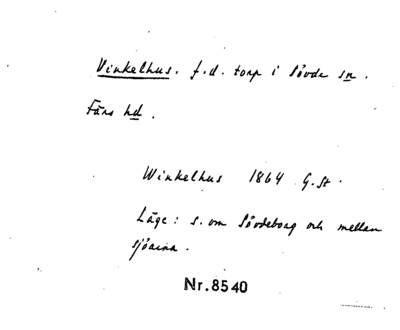 Vinkelhus. f.d. torp i Sövde sn.
Färs hd.
Winkelhus 1864 G. St.
Läge: s. om Sövdeborg och mellan
sjöarna.
Nr. 8540